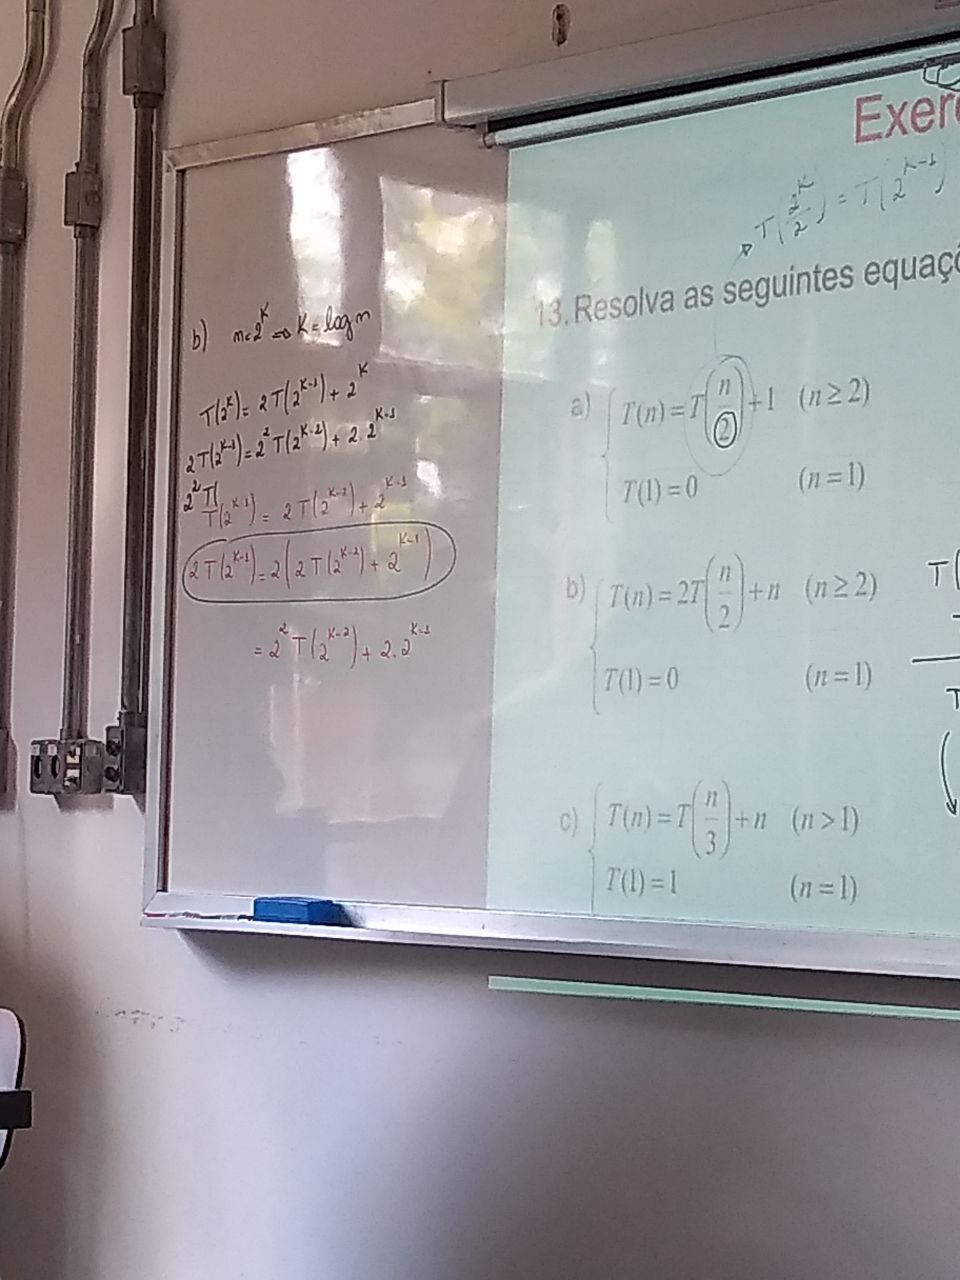 b) n=2^K => K=log n
T(2^K)= 2T(2^{K-1})+2^K
2T(2^{K-1})=2^2 T(2^{K-2})+2.2^{K-1}
2^2 T(
T(2^{K-1}) = 2T(2^{K-2})+2^{K-1}
2T(2^{K-1})=2(2T(2^{K-2})+2^{K-1})
= 2^2 T(2^{K-2})+2.2^{K-1}
T(2^K/2) = T(2^{K-1})
13. Resolva as seguintes
a) T(n)=T(n/2)+1 (n≥2)
T(1)=0 (n=1)
b) T(n)=2T(n/2)+n (n≥2)
T(1)=0 (n=1)
c) T(n)=T(n/3)+n (n>1)
T(1)=1 (n=1)